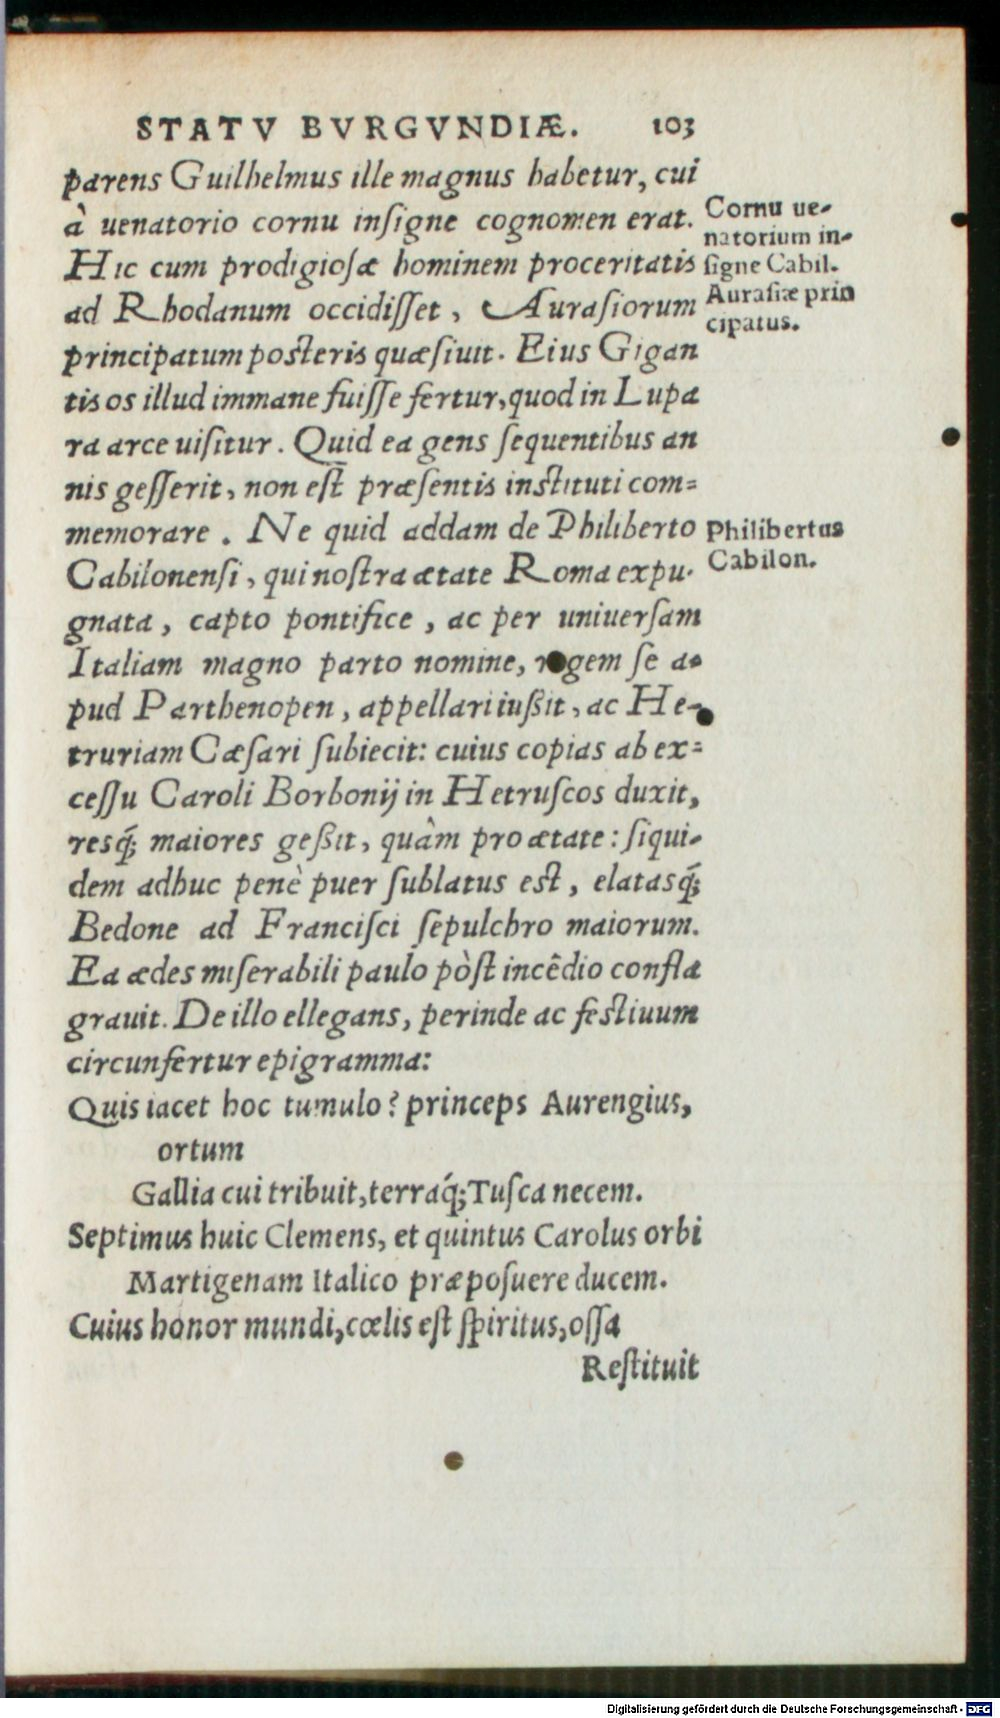 STATV BVRGVNDIÆ. 103
parens Guilhelmus ille magnus habetur, cui
à uenatorio cornu inſigne cognomen erat.
Hic cum prodigioſæ hominem proceritatis
ad Rhodanum occidiſſet, Auraſiorum
principatum poſteris quæſiuit. Eius Gigan
tis os illud immane fuiſſe fertur, quod in Lupa
ra arce uiſitur. Quid ea gens ſequentibus an
nis geſſerit, non eſt præſentis inſtituti com=
memorare. Ne quid addam de Philiberto
Cabilonenſi, qui noſtra ætate Roma expu-
gnata, capto pontifice, ac per uniuerſam
Italiam magno parto nomine, regem ſe a-
pud Parthenopen, appellari iußit, ac He-
truriam Cæſari ſubiecit: cuius copias ab ex=
ceſſu Caroli Borbonij in Hetruſcos duxit,
resq́; maiores geßit, quàm pro ætate: ſiqui-
dem adhuc penè puer ſublatus eſt, elatasq́;
Bedone ad Franciſci ſepulchro maiorum.
Ea ædes miſerabili paulo pòſt incẽdio confla
grauit. De illo ellegans, perinde ac feſtiuum
circunfertur epigramma:
Quis iacet hoc tumulo? princeps Aurengius,
ortum
Gallia cui tribuit, terraq́; Tuſca necem.
Septimus huic Clemens, et quintus Carolus orbi
Martigenam Italico præpoſuere ducem.
Cuius honor mundi, cœlis eſt ſpiritus, oſſa
Reſtituit
Cornu ue-
natorium in-
ſigne Cabil.
Auraſiæ prin
cipatus.
Philibertus
Cabilon.
Digitalisierung gefördert durch die Deutsche Forschungsgemeinschaft - DFG